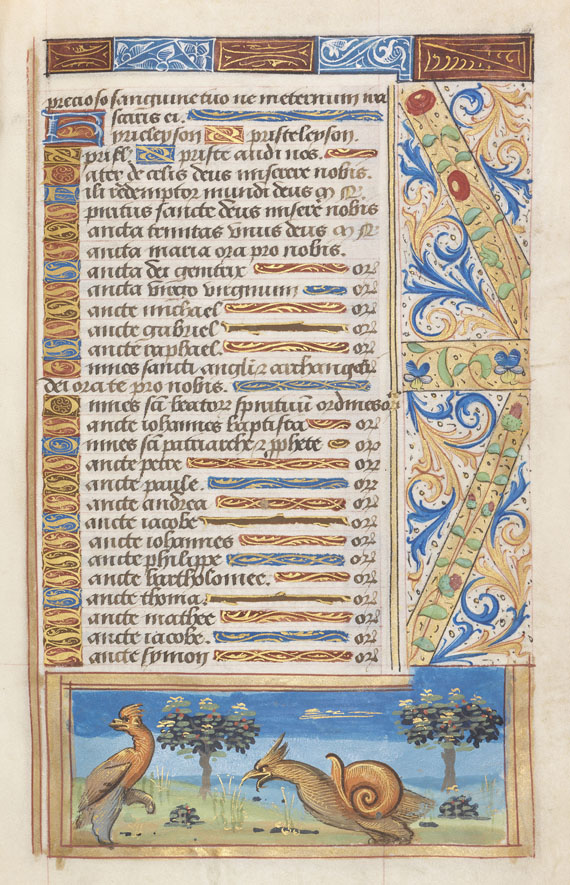 precioso sanguine tuo ne in eternum ira
scaris ei.
Kirieleyson xpisteleyson.
xpiste audi nos.
Pater de celis deus miserere nobis.
Fili redemptor mundi deus m
Spiritus sancte deus misere nobis
Sancta trinitas vnus deus m
Sancta maria ora pro nobis.
Sancta dei genitrix or
Sancta virgo virginum or
Sancte michael or
Sancte gabriel or
Sancte raphael. or
Omnes sancti angli et archangeli
dei orate pro nobis.
Omnes sci beator spirituu ordines or
Sancte iohannes baptista or
Omnes sci patriarche et pphete or
Sancte petre or
Sancte paule. or
Sancte andrea or
Sancte iacobe or
Sancte iohannes or
Sancte philippe or
Sancte bartholomee. or
Sancte thoma. or
Sancte mathee or
Sancte iacobe. or
Sancte symon or